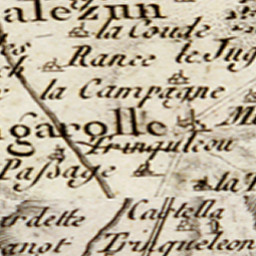 alezun
la Coude
Rance le Jug
la Campagne
garolle M
Tringuleou
Passage
la
ardette Castella
anot Trinqueleon